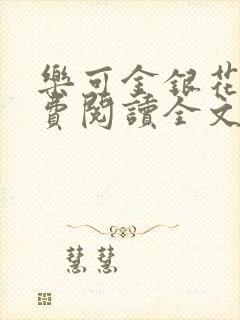 樂可金銀花
費閱讀全文
慧慧